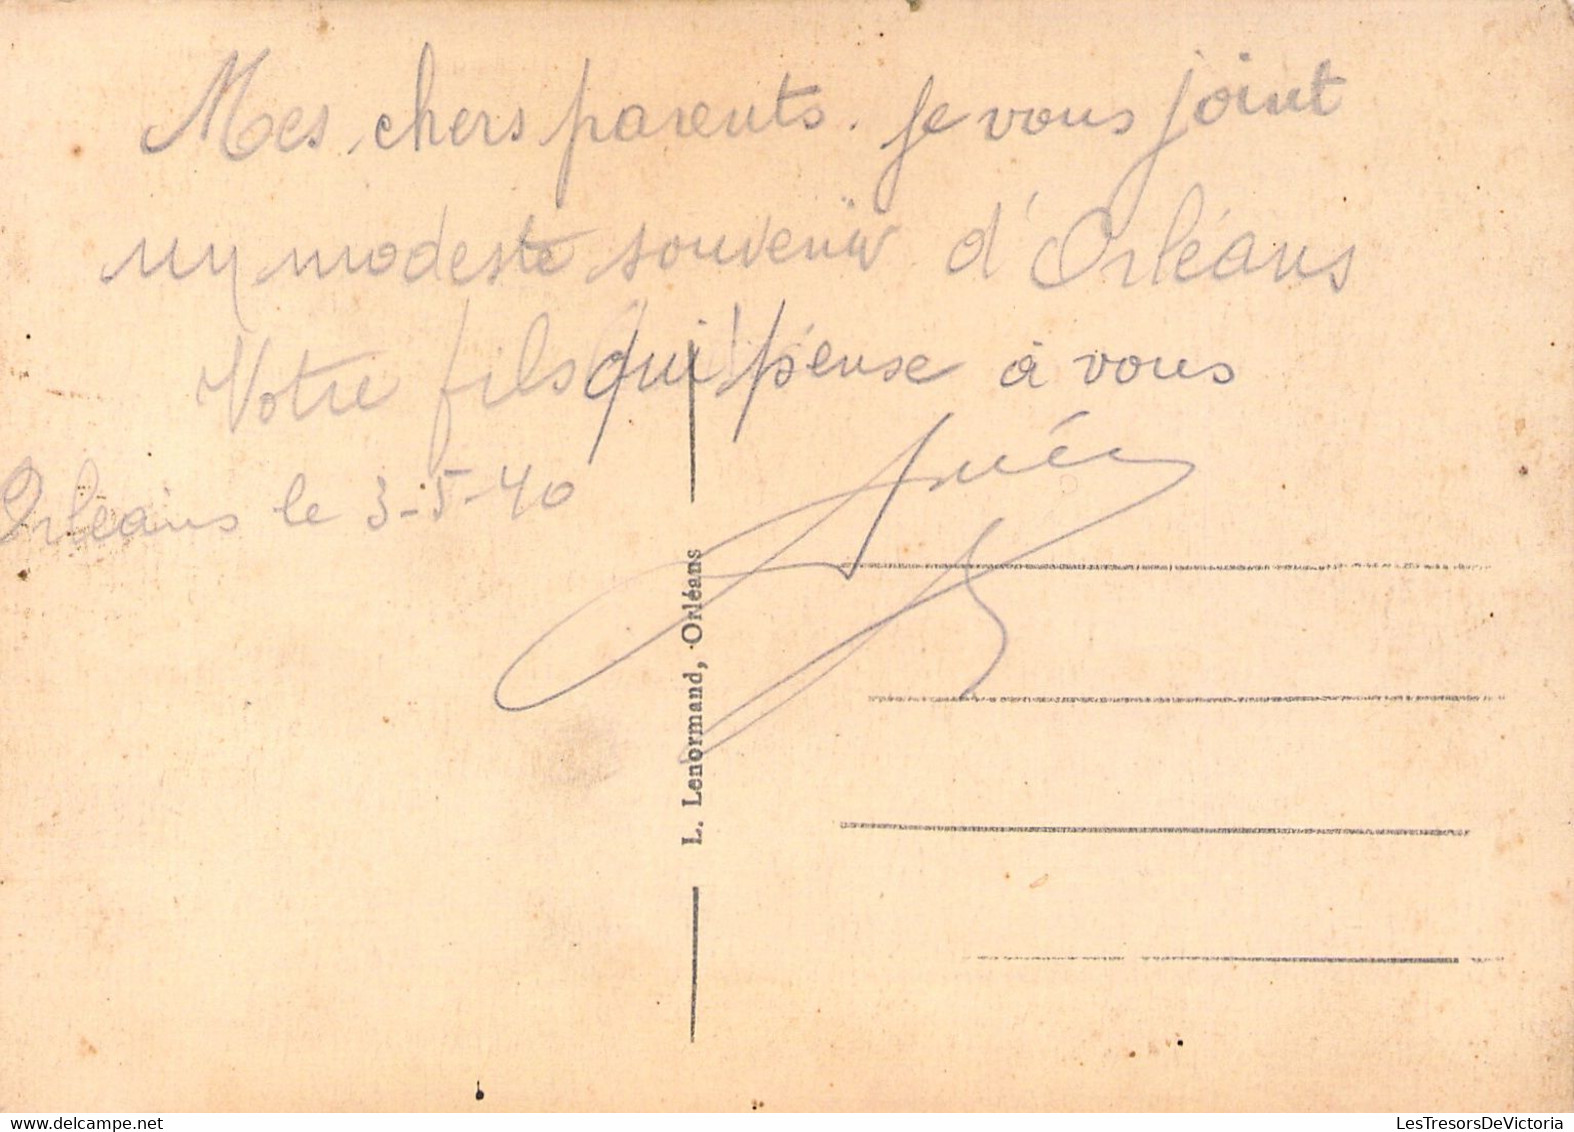 Mes chers parents. je vous joint
un modeste souvenir d'Orléans
Votre fils qui pense à vous
Orléans le 3-5-40
L. Lenormand, Orléans
LesTresorsDeVictoria